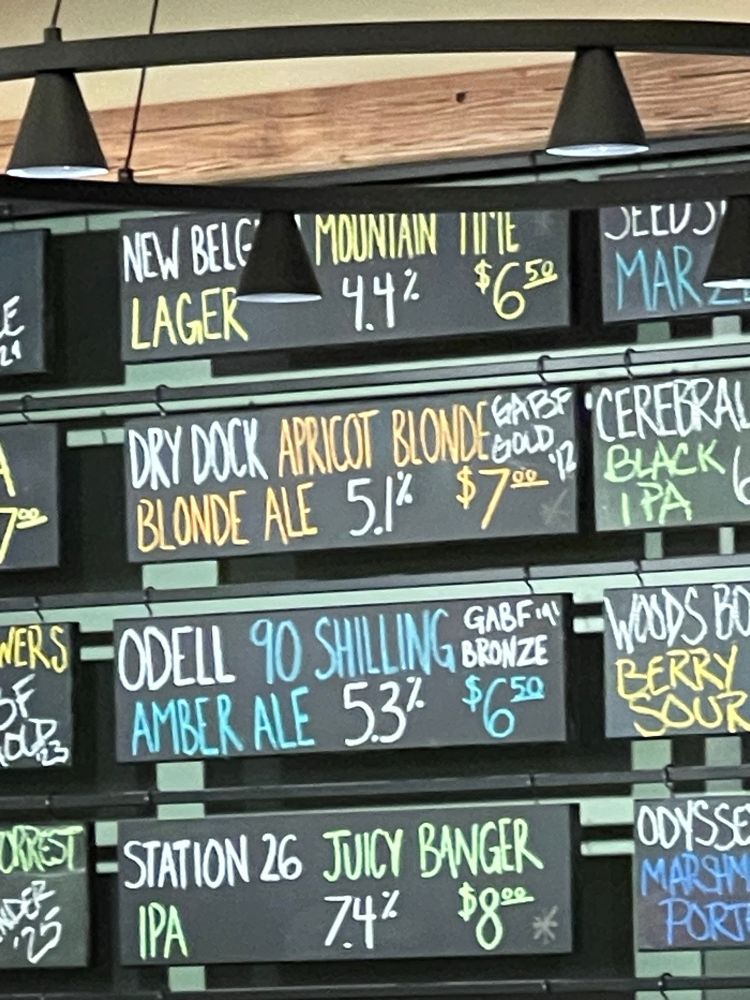 NEW BELG MOUNTAIN TIME
LAGER 4.4% $6.50
DRY DOCK APRICOT BLONDE GABF GOLD '12
BLONDE ALE 5.1% $7.00
ODELL 90 SHILLING GABF '91 BRONZE
AMBER ALE 5.3% $6.50
STATION 26 JUICY BANGER
IPA 7.4% $8.00
MAR
CEREBRAL
BLACK
IPA
WOODS BO
BERRY
SOUR
ODYSSE
MARSHM
PORT
7.00
WERS
ORREST
'23
'25